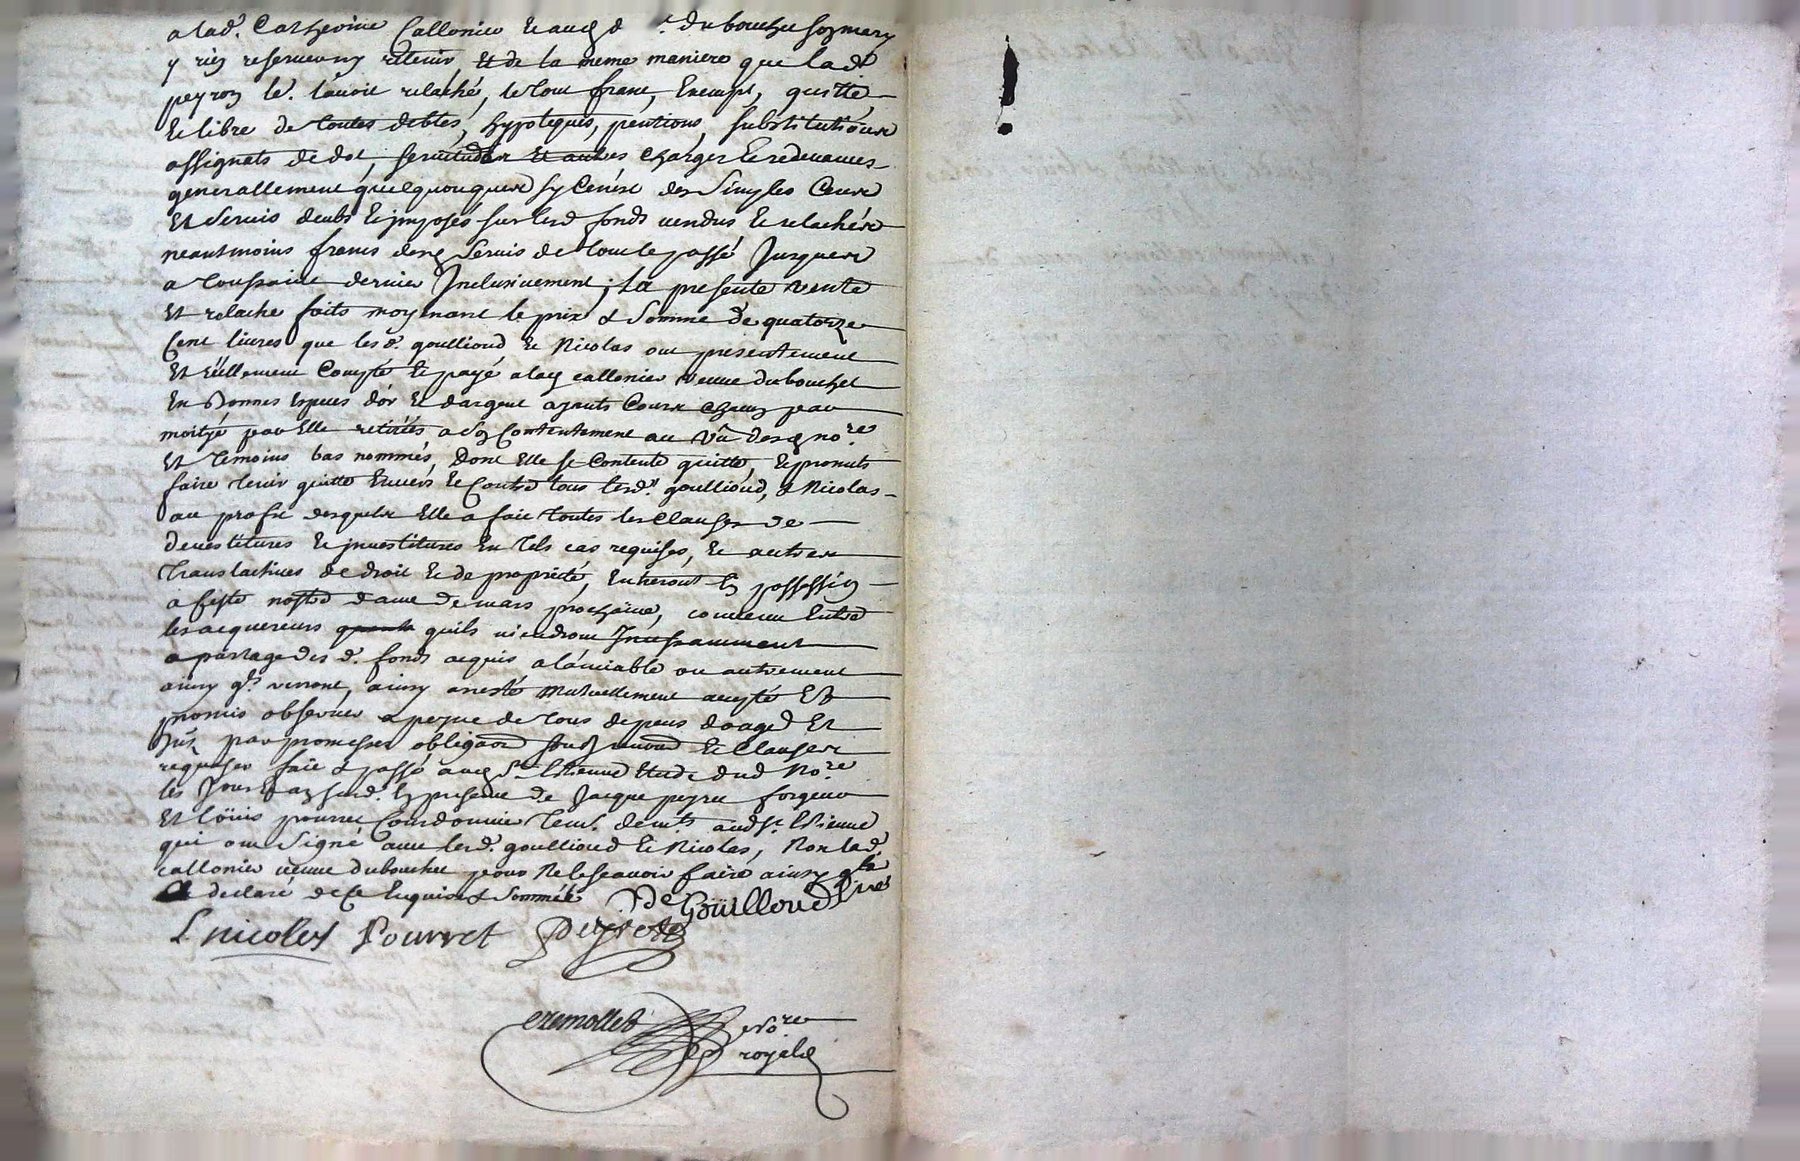 a lad. Catherine Callonier et aud d. du bouchet son mary
y rien reserver ny retenir, et de la meme maniere que lad
peyron le. l'avoit relaché, le tout franc, Exempt, quitte
Et libre de toutes debtes, hypoteques, pentions, substitutions
assignats de dot, servitudes Et autres charges Et redevances
generallement quelquonques sy ce n'est des simples Cens
Et Servis deubs Et imposés sur lesd fonds vendus Et relachés
neantmoins francs desd Servis de tout le passé Jusques
a toussaint dernier Inclusivement; La presente vente
Et relache faits moyenant le prix & Somme de quatorze
Cent livres que les d. goullioud Et Nicolas ont presentement
Et réellement Compté Et payé a lad callonier veuve dubouchet
En Bonnes especes d'or Et d'argent ayants Cours
moityé par Elle retirées a son Contentement au vû desd no.re
Et temoins bas nommés, Dont Elle se Contente quitte, Et promet
faire tenir quitte Envers Et Contre tous lesd. goullioud, & Nicolas
au profit desquels Elle a fait toutes les Clauses de
devestitures Et investitures En tels cas requises, Et autres
translatives de droit Et de proprieté, Entreront En possession
a feste nostre dame de mars prochaine, convenu Entre
les acquereurs quils viendront Incessamment
a partage des d. fonds acquis a l'amiable ou autrement
ainsy q.ls verront, ainsy aresté mutuellement accepté Et
promis observer a peyne de tous depens domages Et
par promesses obligaon Et Clauses
requises fait & passé aud St. Etienne Etude dud No.re
les Jour Et an susd. En presence de Jacque peyre forgeur
Et Loüis pourret Cordonnier tem.s demt.s aud St. Etienne
qui ont Signé avec lesd. goullioud Et Nicolas, Non lad.
callonier veuve dubouchet pour Ne le scavoir faire ainsy
declaré de Ce Enquise & Sommée
De Goüilloud
L nicolas Pourret Peyre
No.re
royal